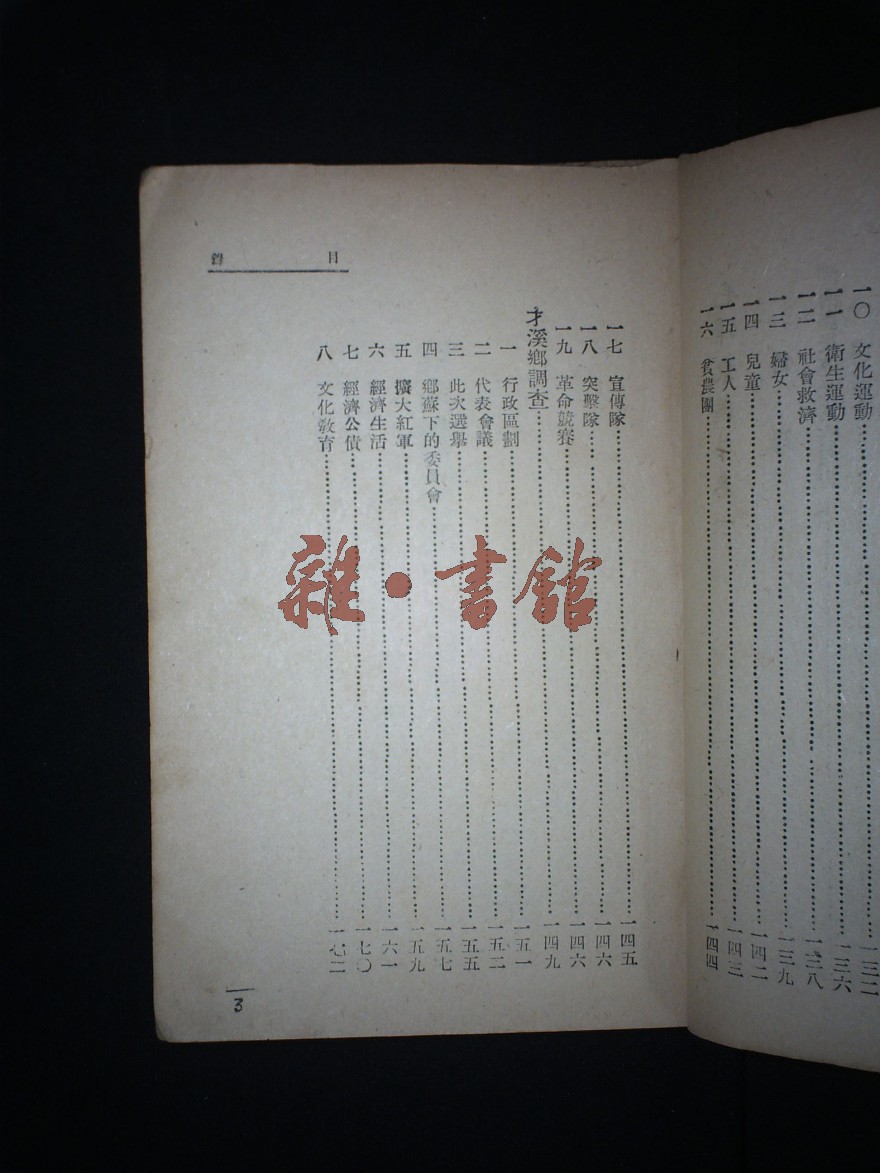 一〇 文化運動……一三二
一一 衛生運動……一三六
一二 社會救濟……一三八
一三 婦女……一三九
一四 兒童……一四二
一五 工人……一四三
一六 貧農團……一四四
目錄
一七 宣傳隊……一四五
一八 突擊隊……一四六
一九 革命競賽……一四六
才溪鄉調查……一四九
一 行政區劃……一五一
二 代表會議……一五二
三 此次選舉……一五五
四 鄉蘇下的委員會……一五七
五 擴大紅軍……一五九
六 經濟生活……一六一
七 經濟公債……一七〇
八 文化教育……一七二
3
雜·書館